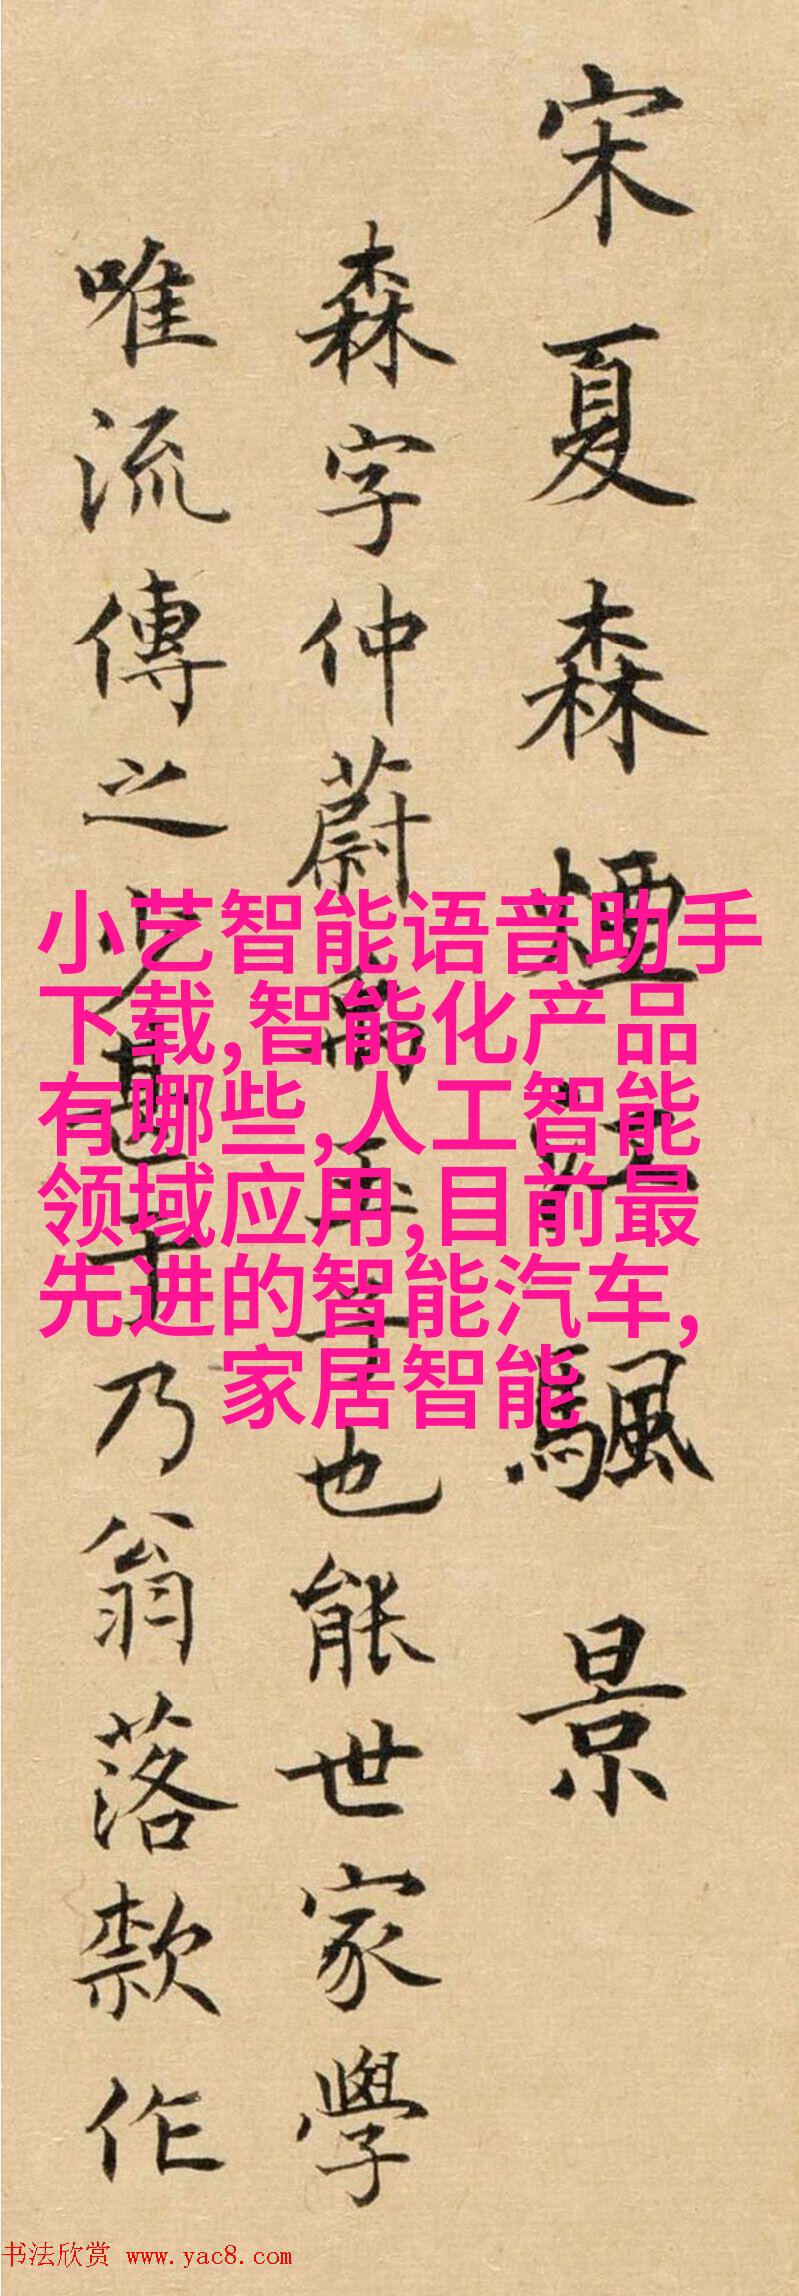 宋夏森煙江颿景
森字仲蔚禹玉子也能世家學
唯流傳之少甚于乃翁落款作
小艺智能语音助手
下载,智能化产品
有哪些,人工智能
领域应用,目前最
先进的智能汽车,
家居智能
书法欣赏 www.yac8.com